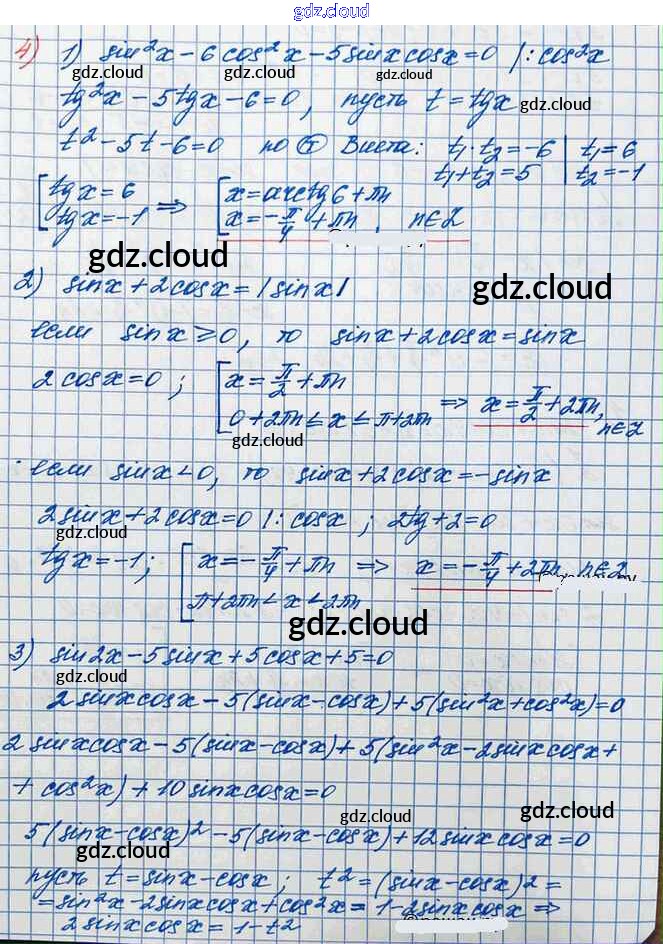 gdz.cloud
4) 1) sin²x - 6 cos²x - 5 sinx cosx = 0 |: cos²x
gdz.cloud gdz.cloud gdz.cloud
tg²x - 5tgx - 6 = 0, пусть t = tgx
gdz.cloud
t² - 5t - 6 = 0 по Ⓣ Виета: t₁·t₂ = -6 | t₁ = 6
t₁ + t₂ = 5 | t₂ = -1
[ tgx = 6 ⇒ [ x = arctg6 + πn
tgx = -1 x = -π/4 + πn, n∈Z
gdz.cloud
2) sinx + 2cosx = |sinx|
gdz.cloud
если sinx ≥ 0, то sinx + 2cosx = sinx
2cosx = 0; [ x = π/2 + πn
0 + 2πn ≤ x ≤ π + 2πn ⇒ x = π/2 + 2πn, n∈Z
gdz.cloud gdz.cloud
если sinx < 0, то sinx + 2cosx = -sinx
gdz.cloud
2sinx + 2cosx = 0 |: cosx; 2tg + 2 = 0
gdz.cloud gdz.cloud
tgx = -1; [ x = -π/4 + πn ⇒ x = -π/4 + 2πn, n∈Z
π + 2πn < x < 2πn
gdz.cloud
3) sin2x - 5sinx + 5cosx + 5 = 0
gdz.cloud
2sinxcosx - 5(sinx - cosx) + 5(sin²x + cos²x) = 0
gdz.cloud
2sinxcosx - 5(sinx - cosx) + 5(sin²x - 2sinxcosx +
+ cos²x) + 10sinxcosx = 0
gdz.cloud gdz.cloud
5(sinx - cosx)² - 5(sinx - cosx) + 12sinxcosx = 0
gdz.cloud
пусть t = sinx - cosx; t² = (sinx - cosx)² =
= sin²x - 2sinxcosx + cos²x = 1 - 2sinxcosx ⇒
2sinxcosx = 1 - t²
gdz.cloud